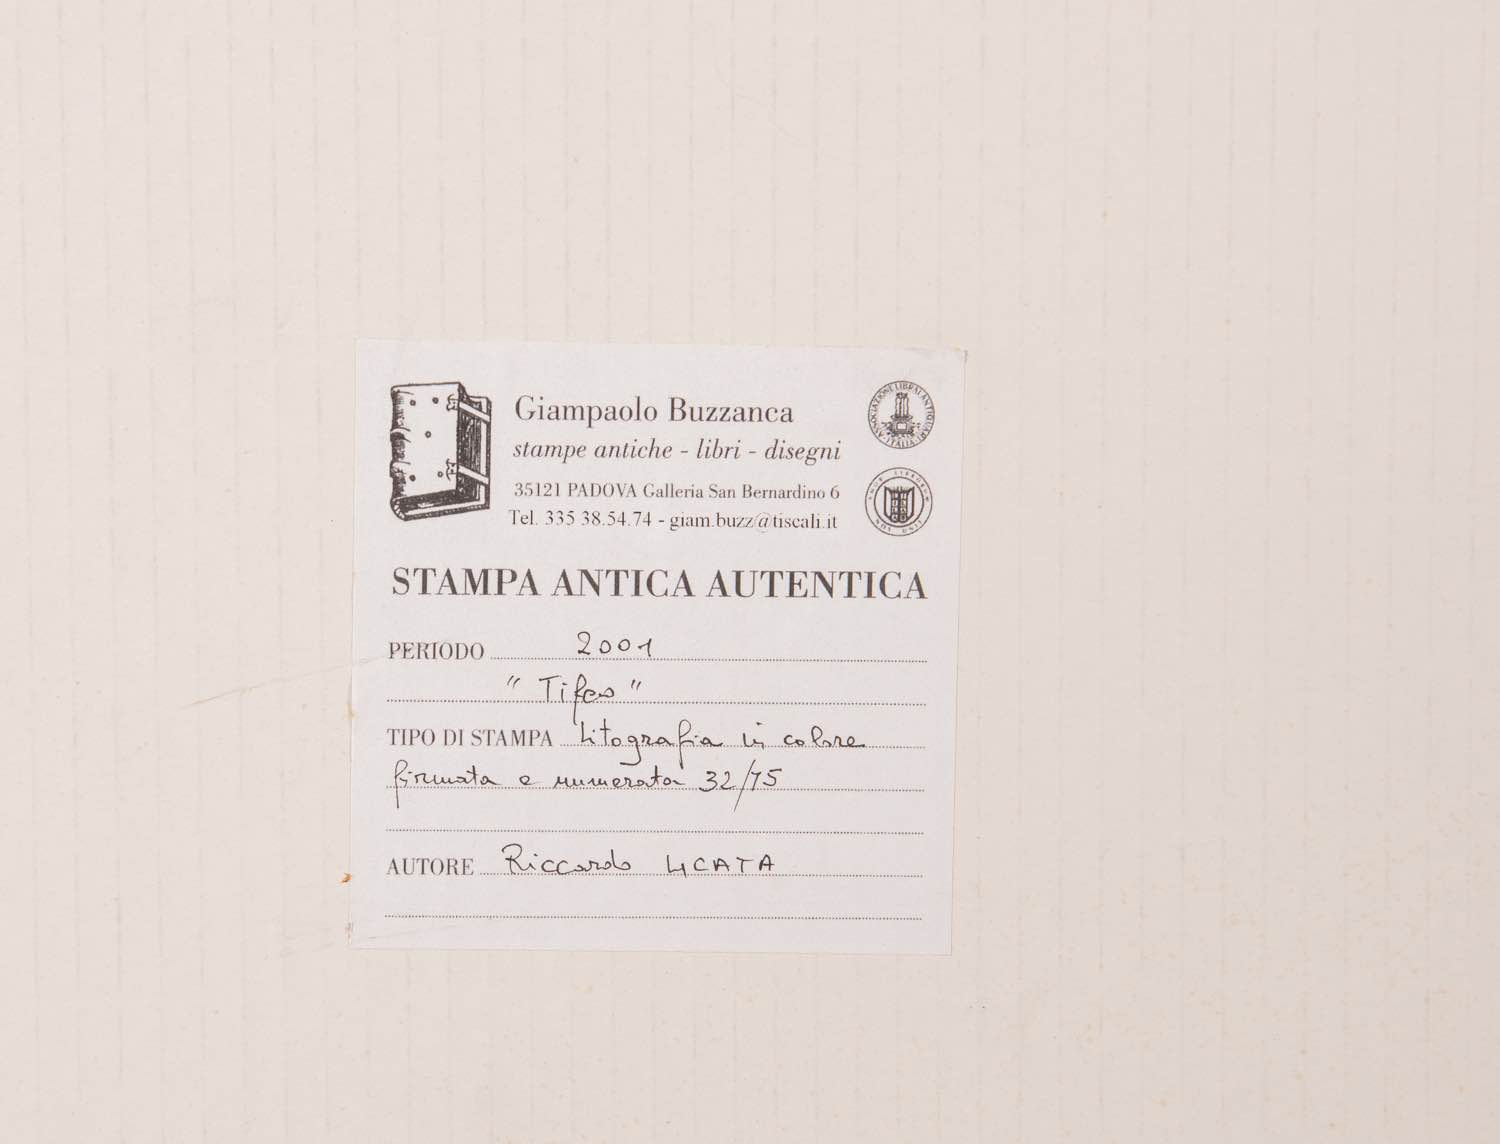 Giampaolo Buzzanca
stampe antiche - libri - disegni
35121 PADOVA Galleria San Bernardino 6
Tel. 335 38.54.74 - giam.buzz@tiscali.it
ASSOCIAZIONE LIBRAI ANTIQUARI
ITALIA
STAMPA ANTICA AUTENTICA
PERIODO 2001
" Tifeo "
TIPO DI STAMPA Litografia in colore
firmata e numerata 32/75
AUTORE Riccardo LICATA